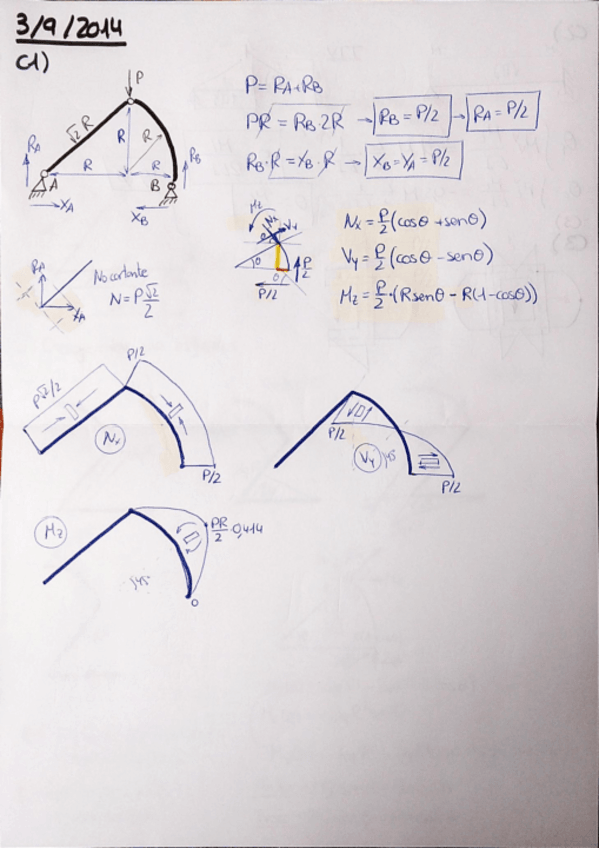 3/9/2014
C1)
P
√2 R
R
R
R
R
R_A
R_B
A
B
X_A
X_B
P = R_A + R_B
PR = R_B·2R → R_B = P/2 → R_A = P/2
R_B·R = X_B·R → X_B = X_A = P/2
M_z
N_x
V_y
θ
θ
P/2
P/2
N_x = P/2 (cosθ + senθ)
V_y = P/2 (cosθ - senθ)
M_z = P/2·(R senθ - R(1-cosθ))
R_A
X_A
No cortante
N = P√2/2
P√2/2
P/2
P/2
N_x
P/2
V_y
45°
P/2
M_z
PR/2·0,414
45°
0